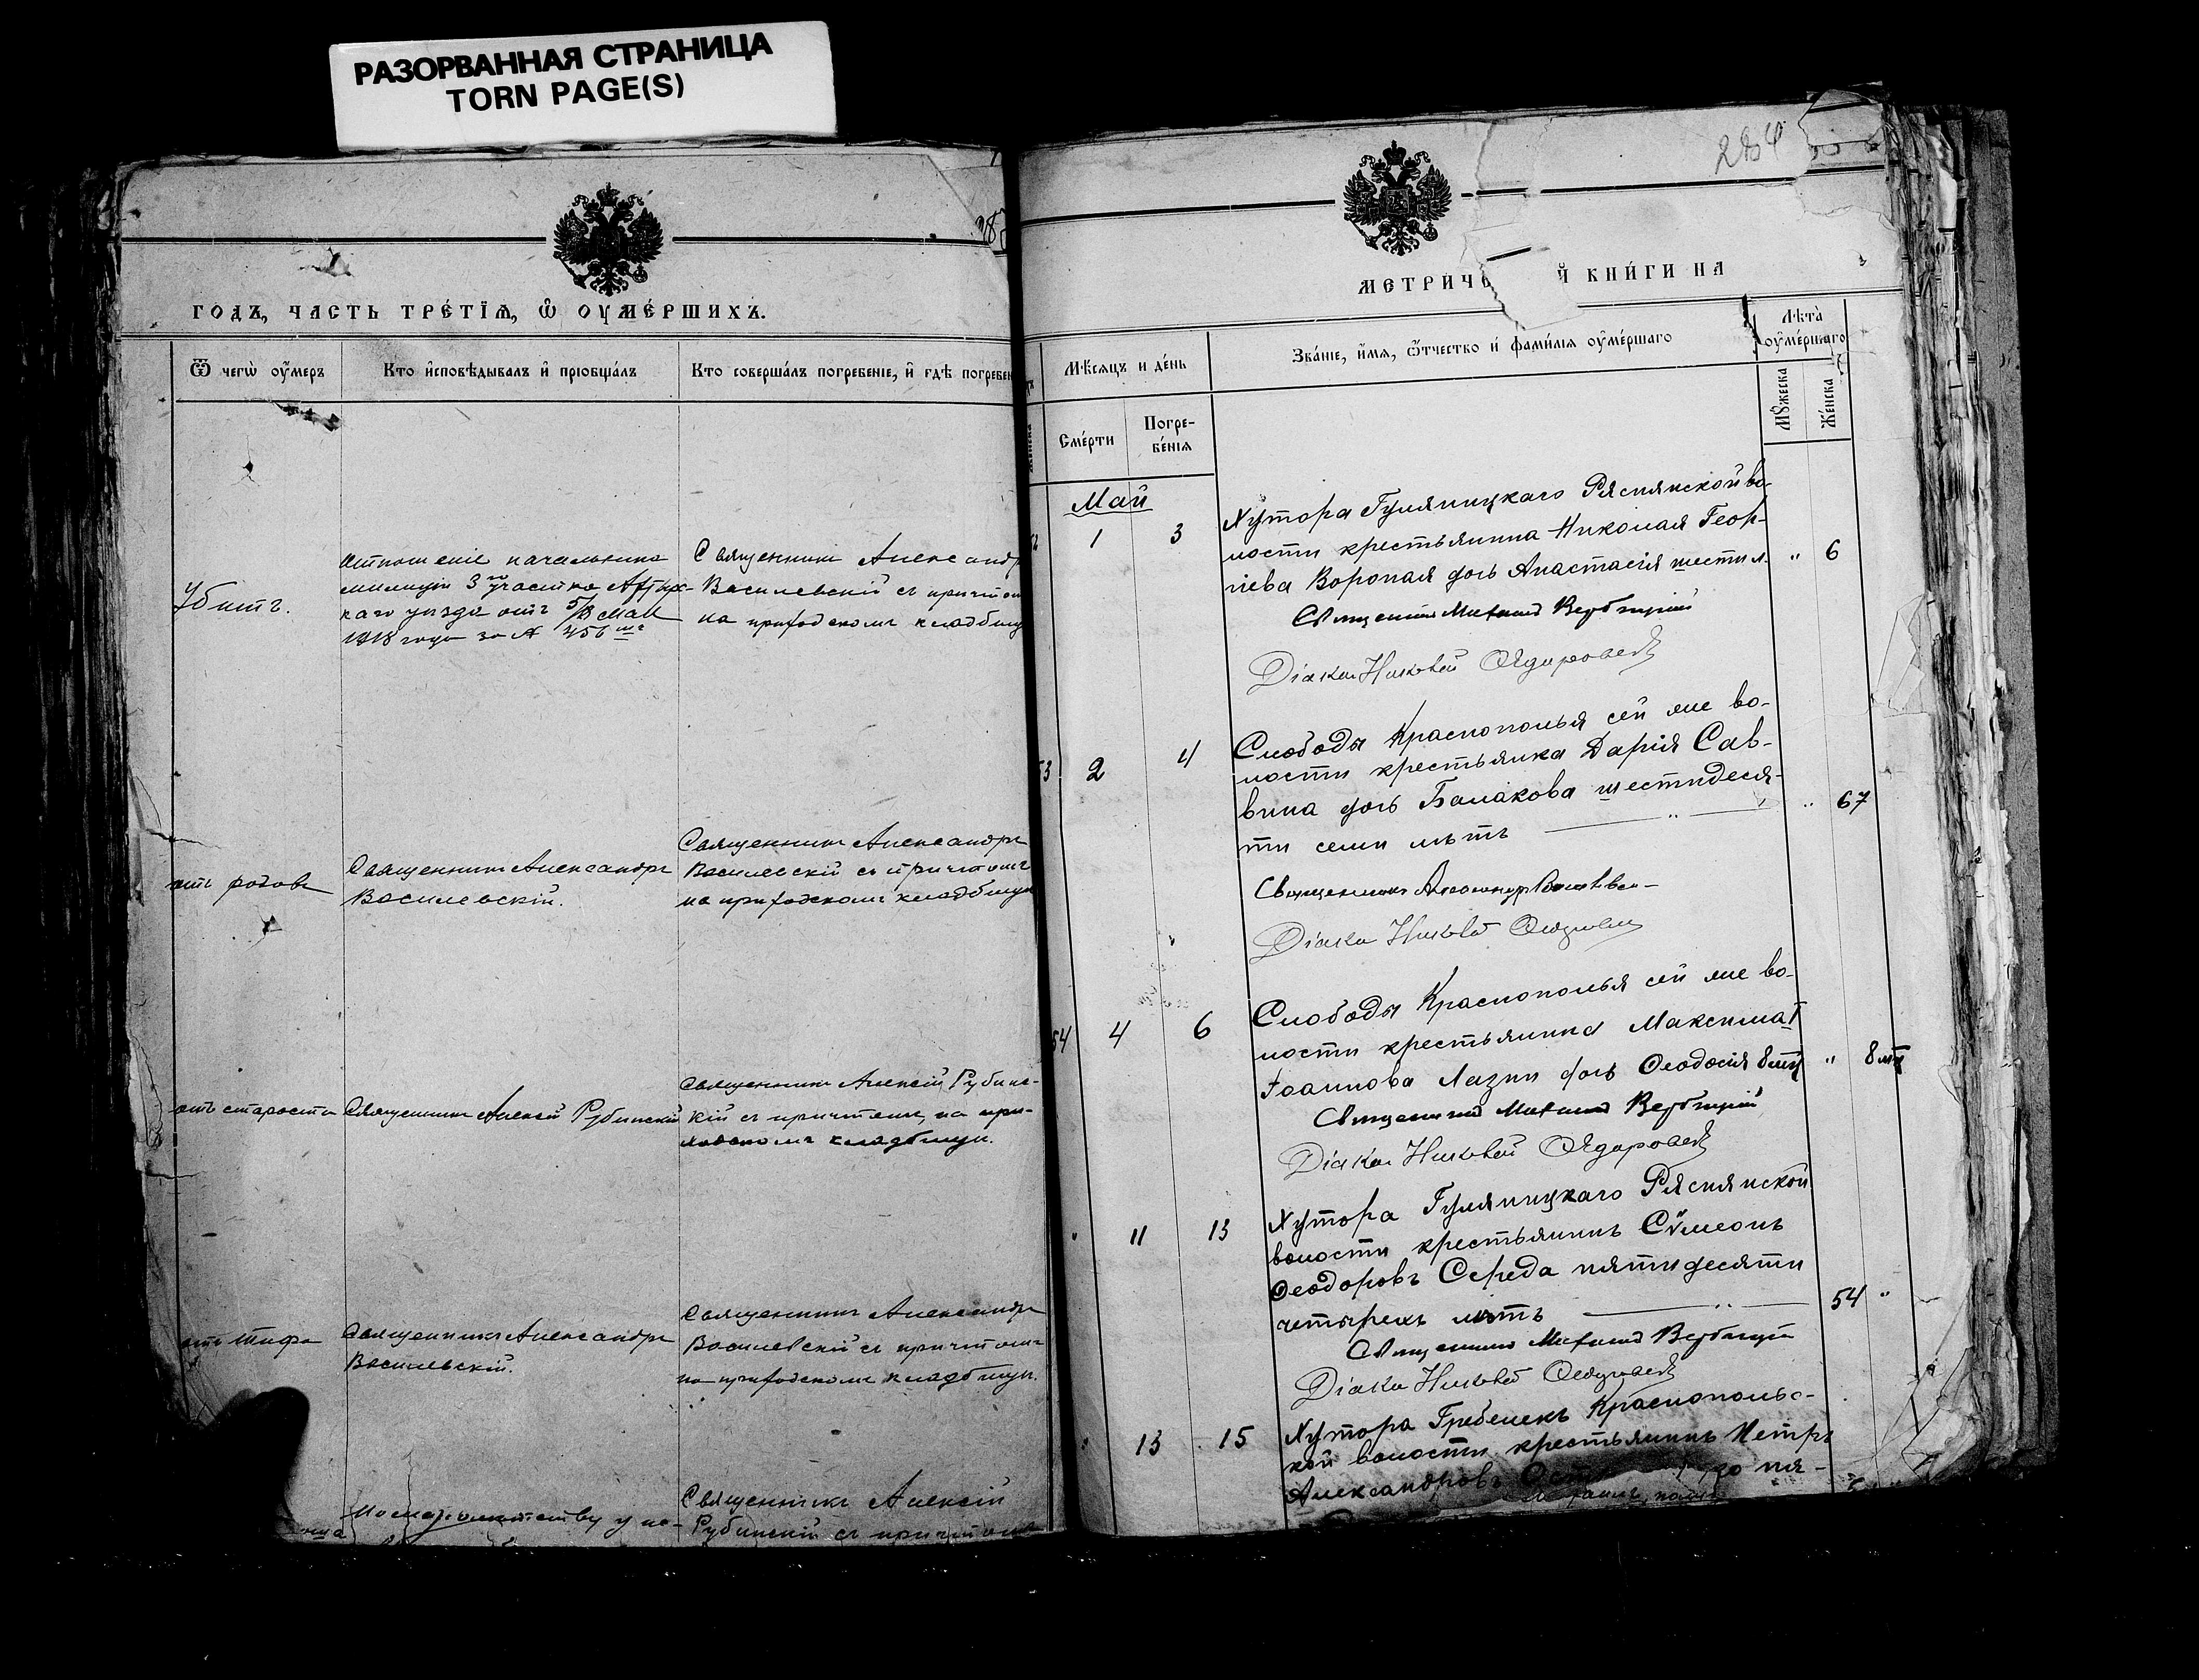 РАЗОРВАННАЯ СТРАНИЦА
TORN PAGE(S)
ГОДЪ, ЧАСТЬ ТРЕ́ТЇѦ, Ѿ ОУМЕ́РШИХЪ.
Ѿ чегѡ оу҆́меръ
Кто и҆сповѣ́дывалъ и҆ прїѡбща́лъ
Кто соверша́лъ погребенїе, и҆ гдѣ̀ погребен
Убитъ.
отношеніе начальника
милиціи 3 участка Ахтыр-
каго уѣзда отъ 5/18 мая
1918 года за № 456
Священникъ Александр
Василевскій съ причтом
на приходскомъ кладбищ
отъ родовъ
Священникъ Александръ
Василевскій.
Священникъ Александръ
Василевскій съ причтомъ
на приходскомъ кладбищѣ
отъ старости
Священникъ Алексій Рубинскій
Священникъ Алексій Рубинс-
кій съ причтомъ, на при-
ходскомъ кладбищѣ.
отъ тифа
Священникъ Александръ
Василевскій.
Священникъ Александръ
Василевскій съ причтомъ
на приходскомъ кладбищѣ.
Священникъ Алексій
Рубинскій съ причтомъ
284
МЕТРИЧЕ Й КНИ́ГИ НА
Мѣ́сѧцъ и де́нь
Сме́рти
Погре-
бе́нїѧ
Зва́нїе, и҆́мѧ, ѻ҆́тчество и҆ фами́лїѧ оу҆ме́ршаго
Лѣ́та
оу҆ме́ршаго
Мꙋ́жеска
Же́нска
Май
1 3
Хутора Гуляницкаго Ряснянской во-
лости крестьянина Николая Геор-
гіева Воропая дочь Анастасія шести л.
" 6
Священникъ Михаилъ Вербицкій
Діаконъ Николай Ѳедоровскій
53 2 4
Слободы Краснополья сей же во-
лости крестьянка Дарія Сав-
вина дочь Балакова шестидеся-
ти семи лѣтъ
" 67
Священникъ Александръ Василевскій
Діаконъ Николай Ѳедоровскій
54 4 6
Слободы Краснополья сей же во-
лости крестьянина Максима
Іоаннова Лазни дочь Ѳеодосія 8 мц
" 8 мц
Священникъ Михаилъ Вербицкій
Діаконъ Николай Ѳедоровскій
" 11 13
Хутора Гуляницкаго Ряснянской
волости крестьянинъ Сѵмеонъ
Ѳеодоровъ Середа пятидесяти
четырехъ лѣтъ
54 "
Священникъ Михаилъ Вербицкій
Діаконъ Николай Ѳедоровскій
13 15
Хутора Гребелекъ Краснопольс-
кой волости крестьянинъ Петръ
Александровъ